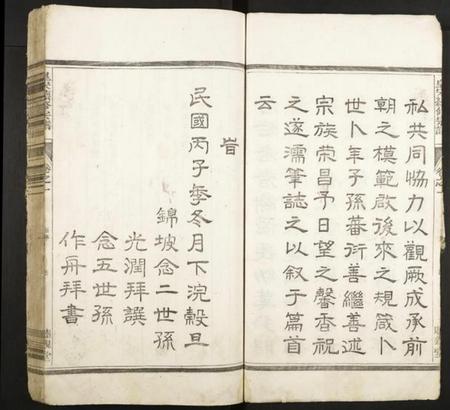 私共同恊力以觀厥成承前
朝之模範啟後來之規箴卜
世卜年子孫蕃衍善繼善述
宗族荣昌予日望之馨香祝
之遂濡筆誌之以叙于篇首
云
旹
民國丙子季冬月下浣榖旦
錦坡念二世孫
光潤拜譔
念五世孫
作舟拜書